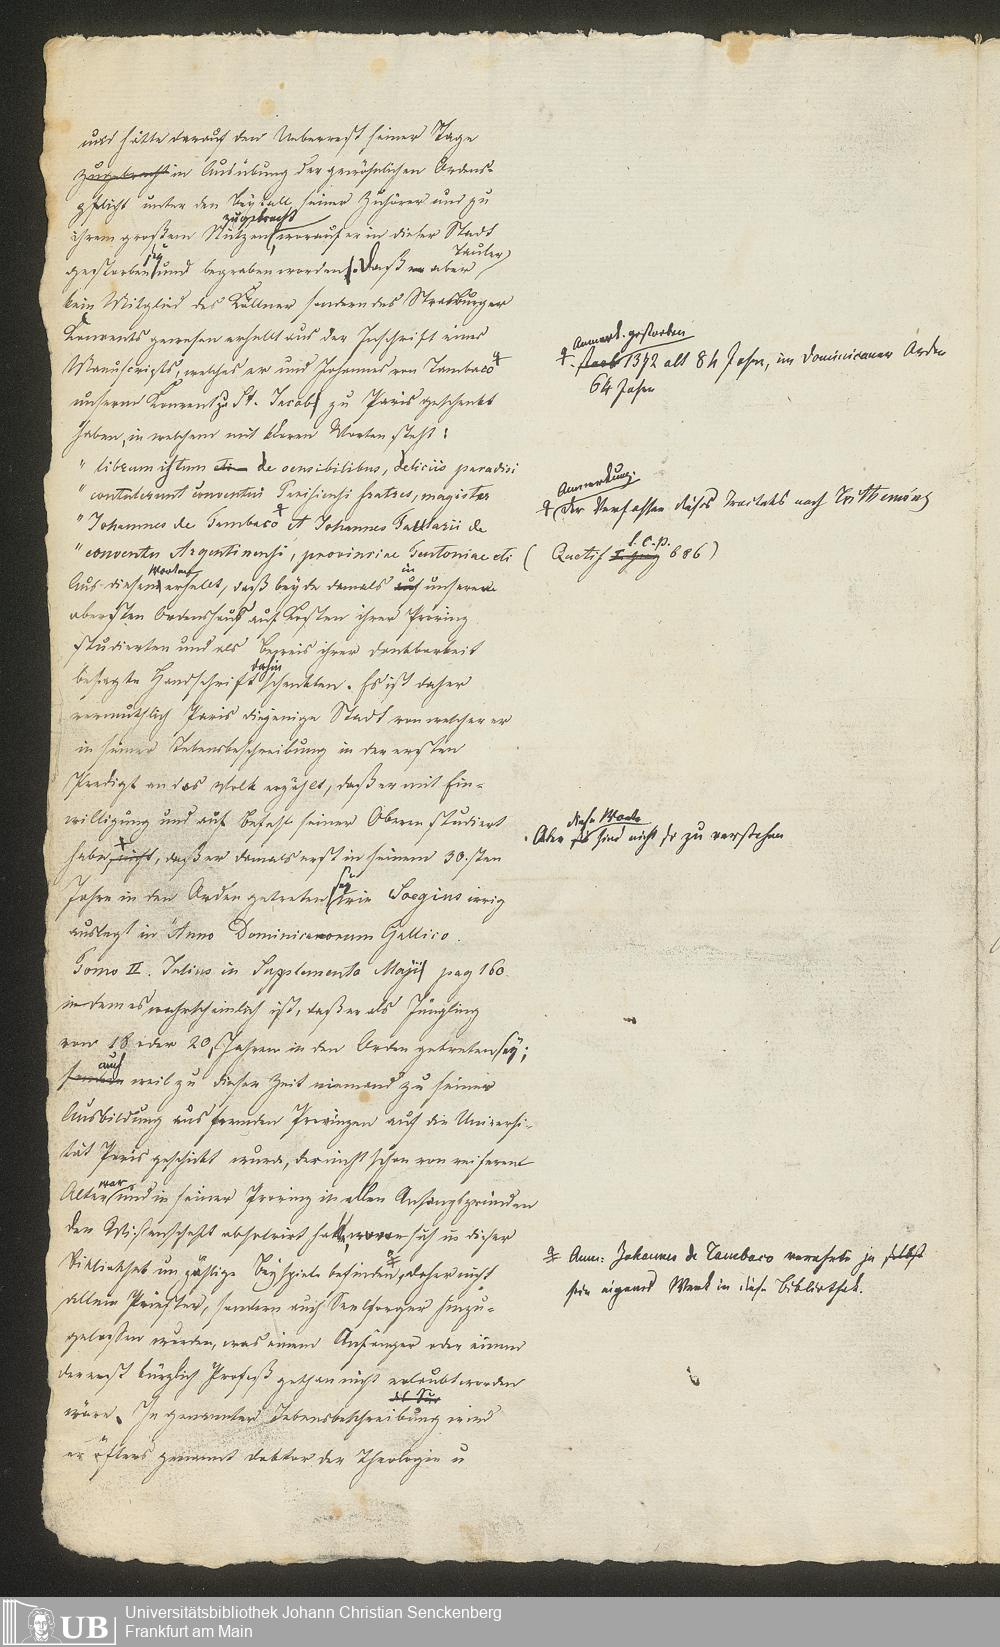 und hätte darauf den Ueberrest seiner Tage
zugebracht in Ausübung der gewöhnlichen Ordens-
pflicht unter den Beyfall seiner Zuhörer und zu
zugebracht
ihrem großem Nutzen, worauf er in dieser Stadt
gestorben sey und begraben worden. Daß er aber Tauler
kein Mitglied des Köllner sondern des Strasburger
Konvents gewesen erhellt aus der Inschrift eines
Manuscripts, welches er und Johannes von Tambaco
unserm Konvent zu St. Jacob zu Paris geschenkt
haben, in welchem mit klaren Worten steht:
" librum istum de sensibilibus, deliciis paradisi
" contulerunt conventui Parisiensi fratres, magister
" Johannes de Tambaco et Johannes Taularii de
" conventu Argentinensi, provinciae Teutoniae
Aus diesen Worten erhellt, daß beyde damals in unserem
obersten Ordenshaus auf Kosten ihrer Provinz
studierten und als Beweis ihrer Dankbarkeit
besagte Handschrift dahin schenkten. Es ist daher
vermuthlich Paris diejenige Stadt von welcher er
in seiner Lebensbeschreibung in der ersten
Predigt an das Volk erzählt, daß er mit Ein-
willigung und auf Befehl seiner Obern studiert
habe, nicht, daß er damals erst in seinem 30.sten
Jahre in den Orden getreten sey wie Soegius irrig
auslegt in Anno Dominicanorum Gallico.
Tomo II. Julius in Supplemento Maji pag 160.
indem es wahrscheinlich ist, daß er als Jüngling
von 18 oder 20 Jahren in den Orden getreten sey;
auch
sondern weil zu dieser Zeit niemand zu seiner
Ausbildung aus fremden Provinzen auf die Universi-
tät Paris geschickt wurde, der nicht schon von reiferem
Alter war und in seiner Provinz in allen Anfangsgründen
der Wissenschaft absolvirt hatte, wovon sich in dieser
Bibliothek unzählige Beyspiele befinden, daher nicht
allein Priester, sondern auch Seelsorger hinzu-
gelassen wurden, was einem Anfänger oder einem
der erst kürzlich Profeß gethan nicht erlaubt worden
wäre. In genannter Lebensbeschreibung wird
er öfters genannt Doktor der Theologie u
Anmerk. gestorben
starb 1372 alt 84 Jahr, im Dominicaner Orden
64 Jahr
Anmerkung.
Der Verfasser dieses Tractats nach Trithemius
( Quetif l. c. p. 686)
diese Worte
Aber sind nicht so zu verstehen
Anm: Johannes de Tambaco verehrte ja selbst
sein eigenes Werk in diese Bibliothek.
UB
Universitätsbibliothek Johann Christian Senckenberg
Frankfurt am Main